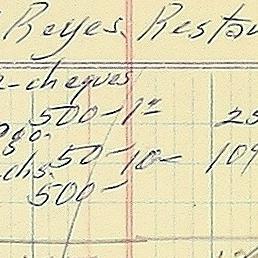 Reyes Restau
-cheques
500- 1ª 25
ago.
chs. 50- 10- 109
500-